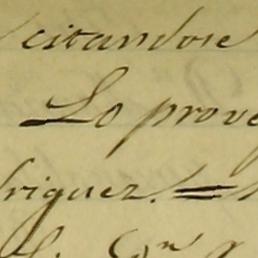 citandose
Lo prove
riguez. =